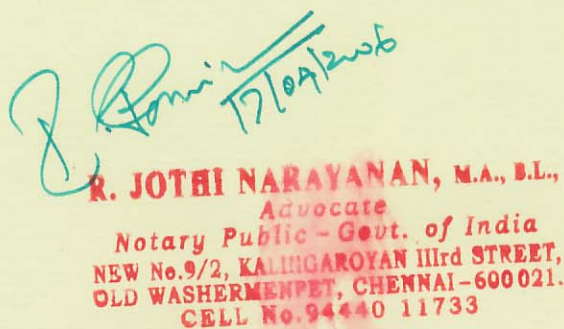 17/04/2026
R. JOTHI NARAYANAN, M.A., B.L.,
Advocate
Notary Public - Govt. of India
NEW No.9/2, KALINGAROYAN IIIrd STREET,
OLD WASHERMENPET, CHENNAI-600021.
CELL No.94440 11733